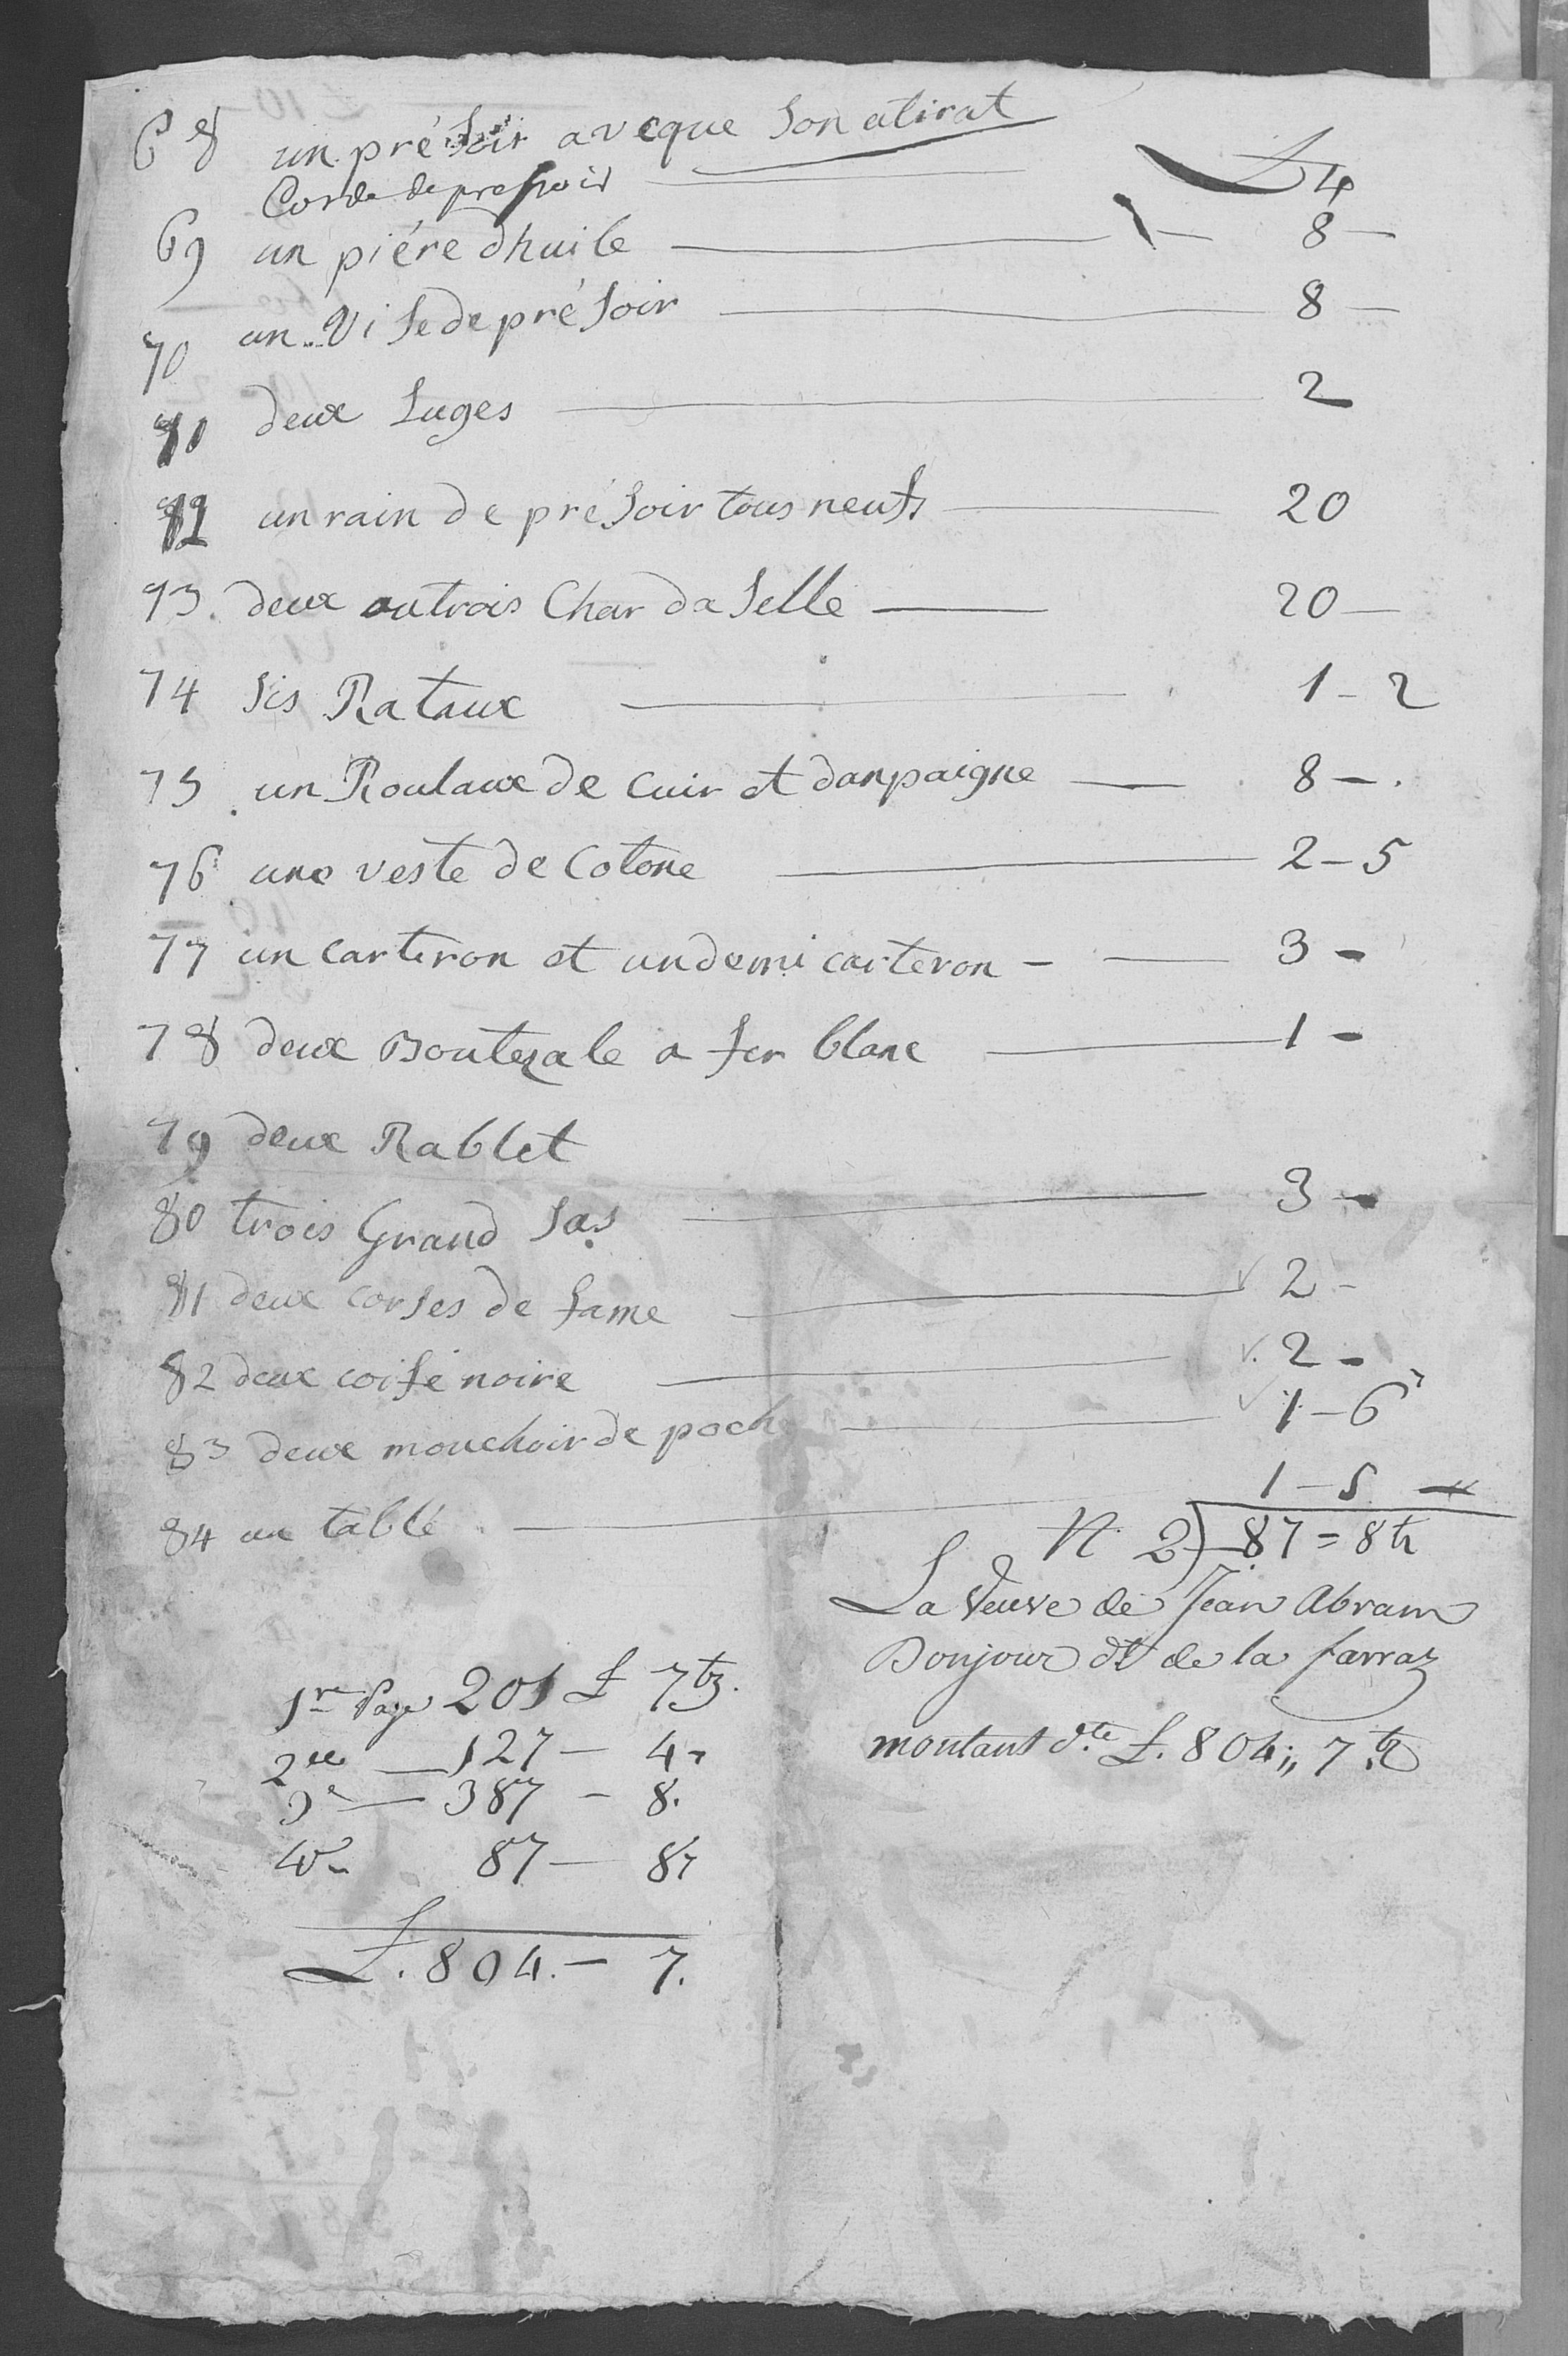 68 un présoir aveque son atirat
Corde de pressoir £ 4
69 un piére dhuile 1 — 8 —
70 un Vise de présoir 8 —
71 deux luges 2
72 un rain de présoir tous neufs 20
73 deux ou trois Char da selle 20 —
74 sis Rataux 1 - 2
75 un Roulaux de cuir et danpaigne 8 —
76 une veste de Cotone 2 - 5
77 un carteron et un demi carteron 3 -
78 deux Boutezale a fer blanc 1 -
79 deux Rablet
80 trois Grand sas 3 -
81 deux corses de fame 2 -
82 deux coife noire 2 -
83 deux mouchoir de poche 1 - 6
84 un table 1 - 5
N 2) 87 = 8 tz
La Veuve de Jean Abram
Bonjour dt de la farraz
montant d.te £. 804 ,, 7 tz
1re Page 201 £ 7 tz.
2de — 127 — 4
3e — 387 — 8.
4e 87 — 8
£. 804. — 7.